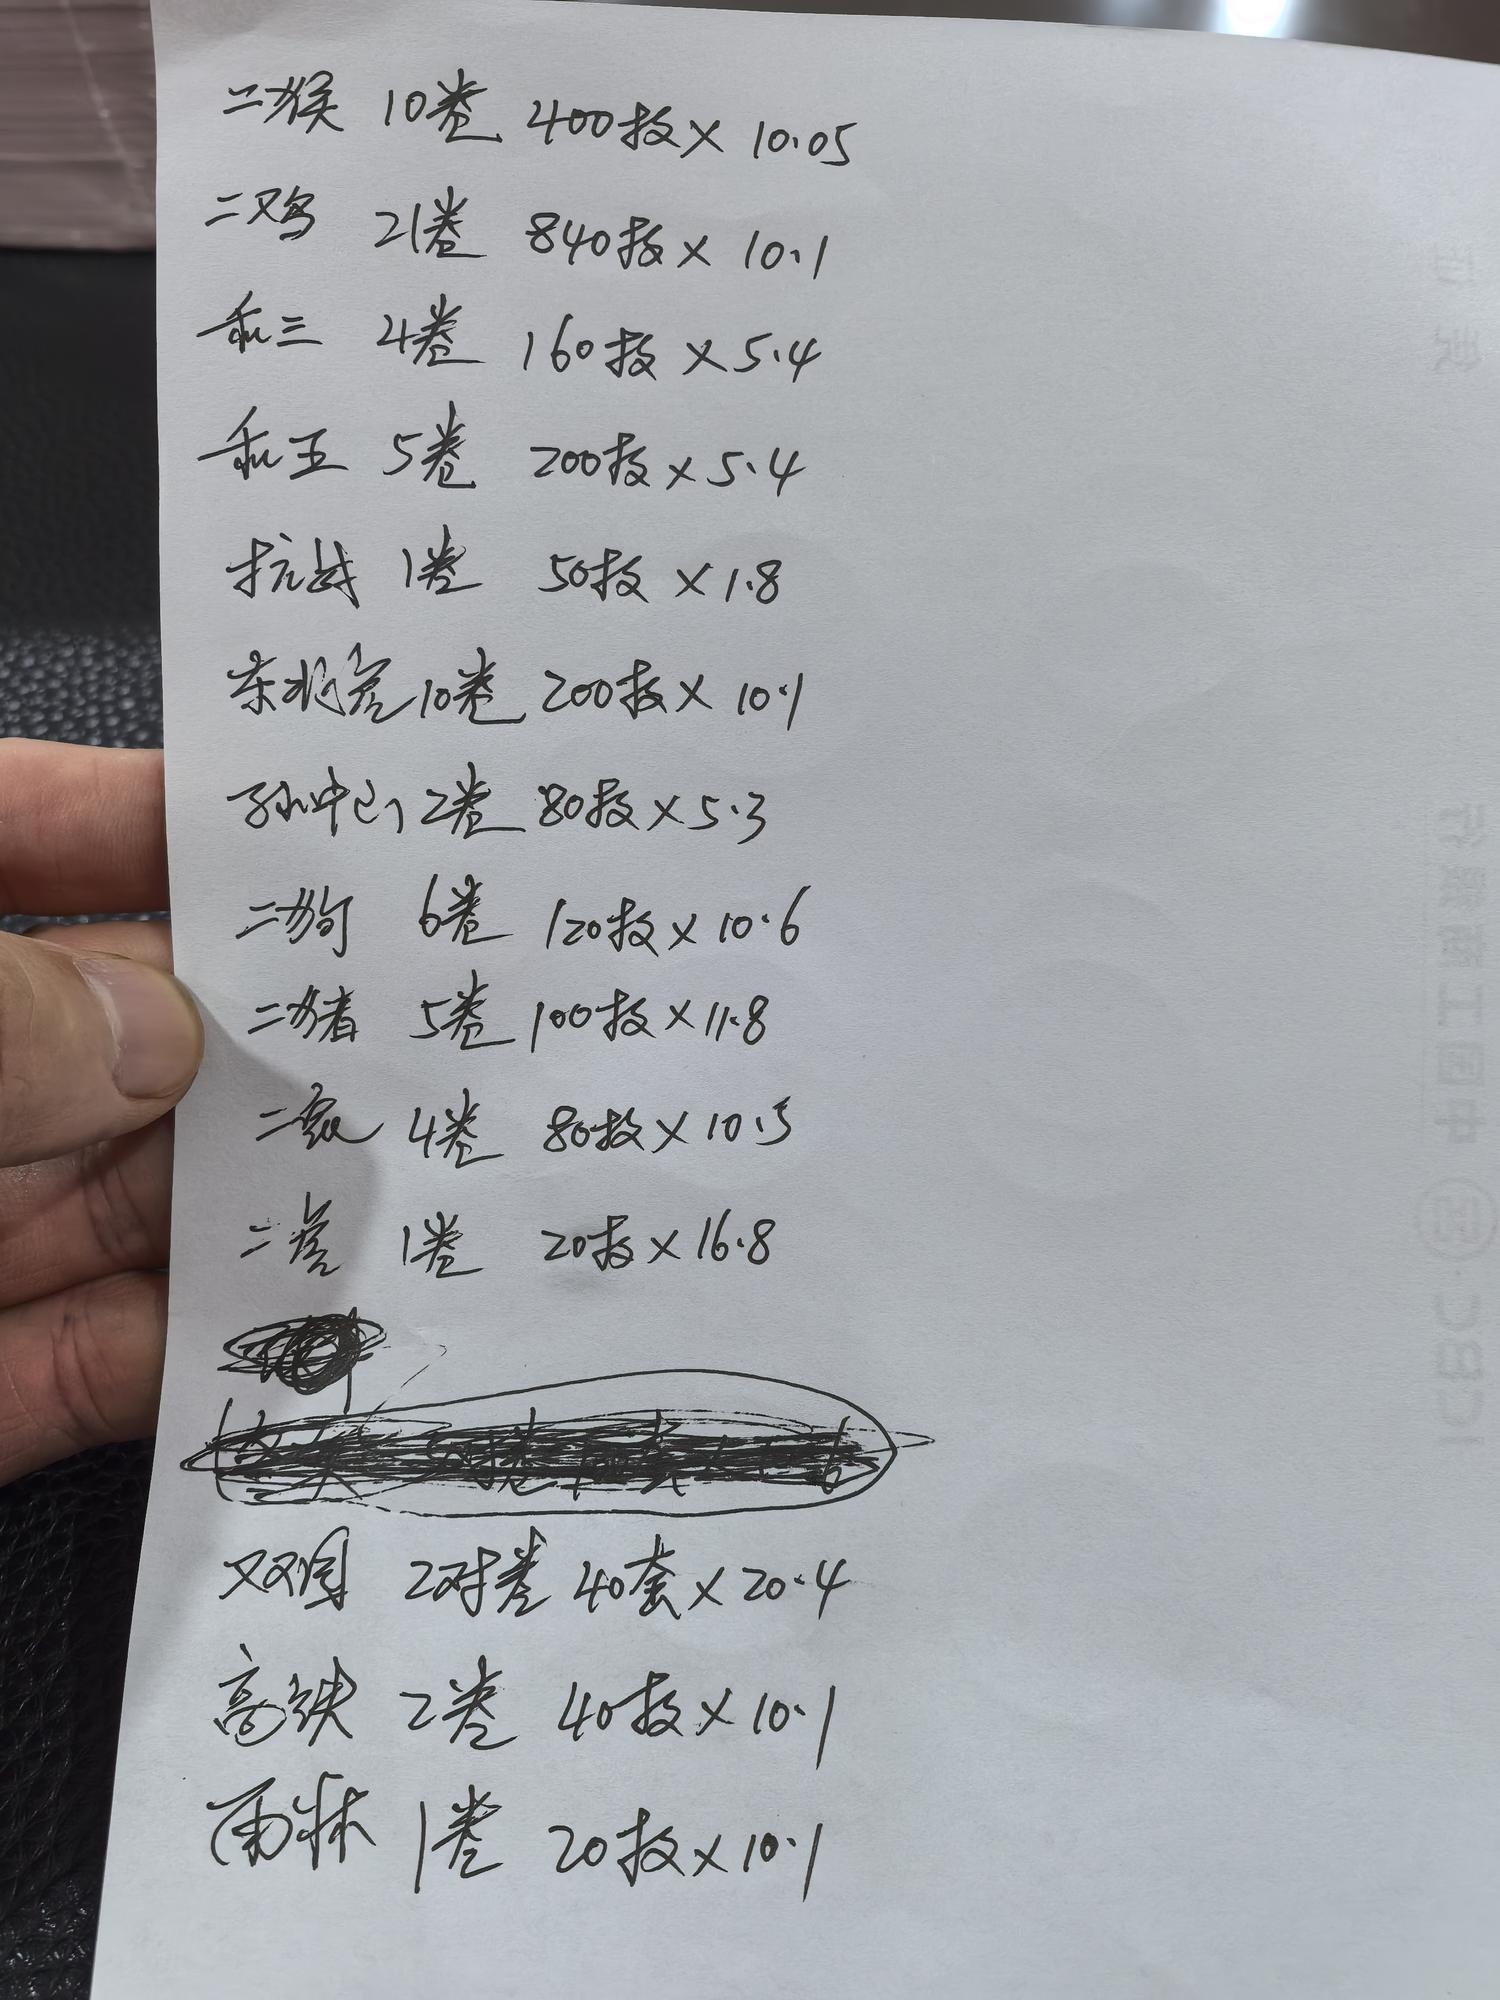 二猴 10卷 400枚×10.05
二鸡 21卷 840枚×10.1
和三 4卷 160枚×5.4
和五 5卷 200枚×5.4
抗战 1卷 50枚×1.8
东北虎 10卷 200枚×10.1
孙中山 2卷 80枚×5.3
二狗 6卷 120枚×10.6
二猪 5卷 100枚×11.8
二鼠 4卷 80枚×10.5
二虎 1卷 20枚×16.8
双国 2对卷 40套×20.4
高铁 2卷 40枚×10.1
雨林 1卷 20枚×10.1
中国工商银行
ICBC